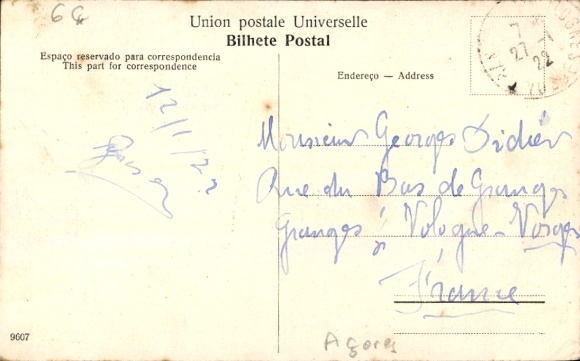 6G
Union postale Universelle
Bilhete Postal
Espaço reservado para correspondencia
This part for correspondence
Endereço — Address
7
27 - 1
22
12/1/22
Monsieur Georges Didier
Rue du Bas de Granges
Granges s/ Vologne - Vosges
France
9607
Açores